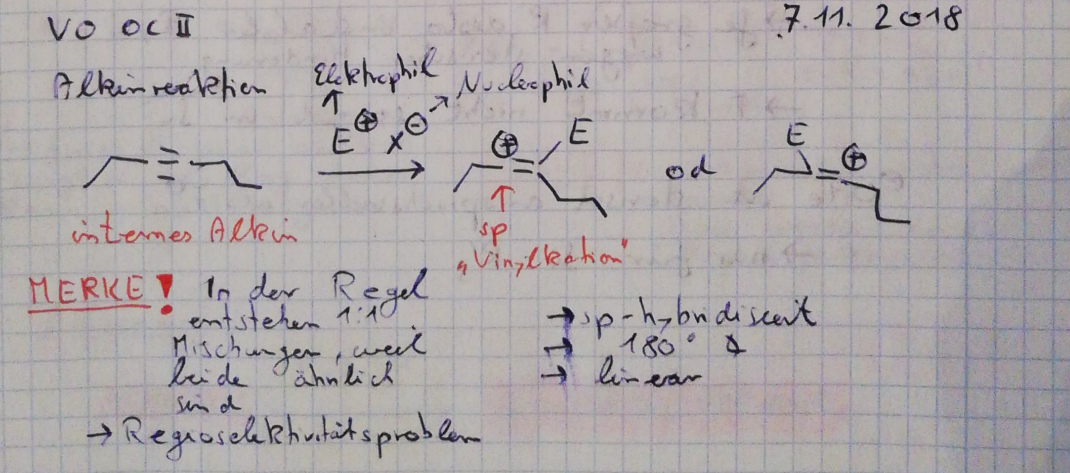 VO OC II
7.11. 2018
Alkinreaktion
Elektrophil
Nucleophil
E⊕ X⊖
⊕ E
od
E ⊕
internes Alkin
sp
"Vinylkation"
MERKE! In der Regel
entstehen 1:1
Mischungen, weil
beide ähnlich
sind
→ Regioselektivitätsproblem
→ sp-hybridisiert
→ 180° ∡
→ linear